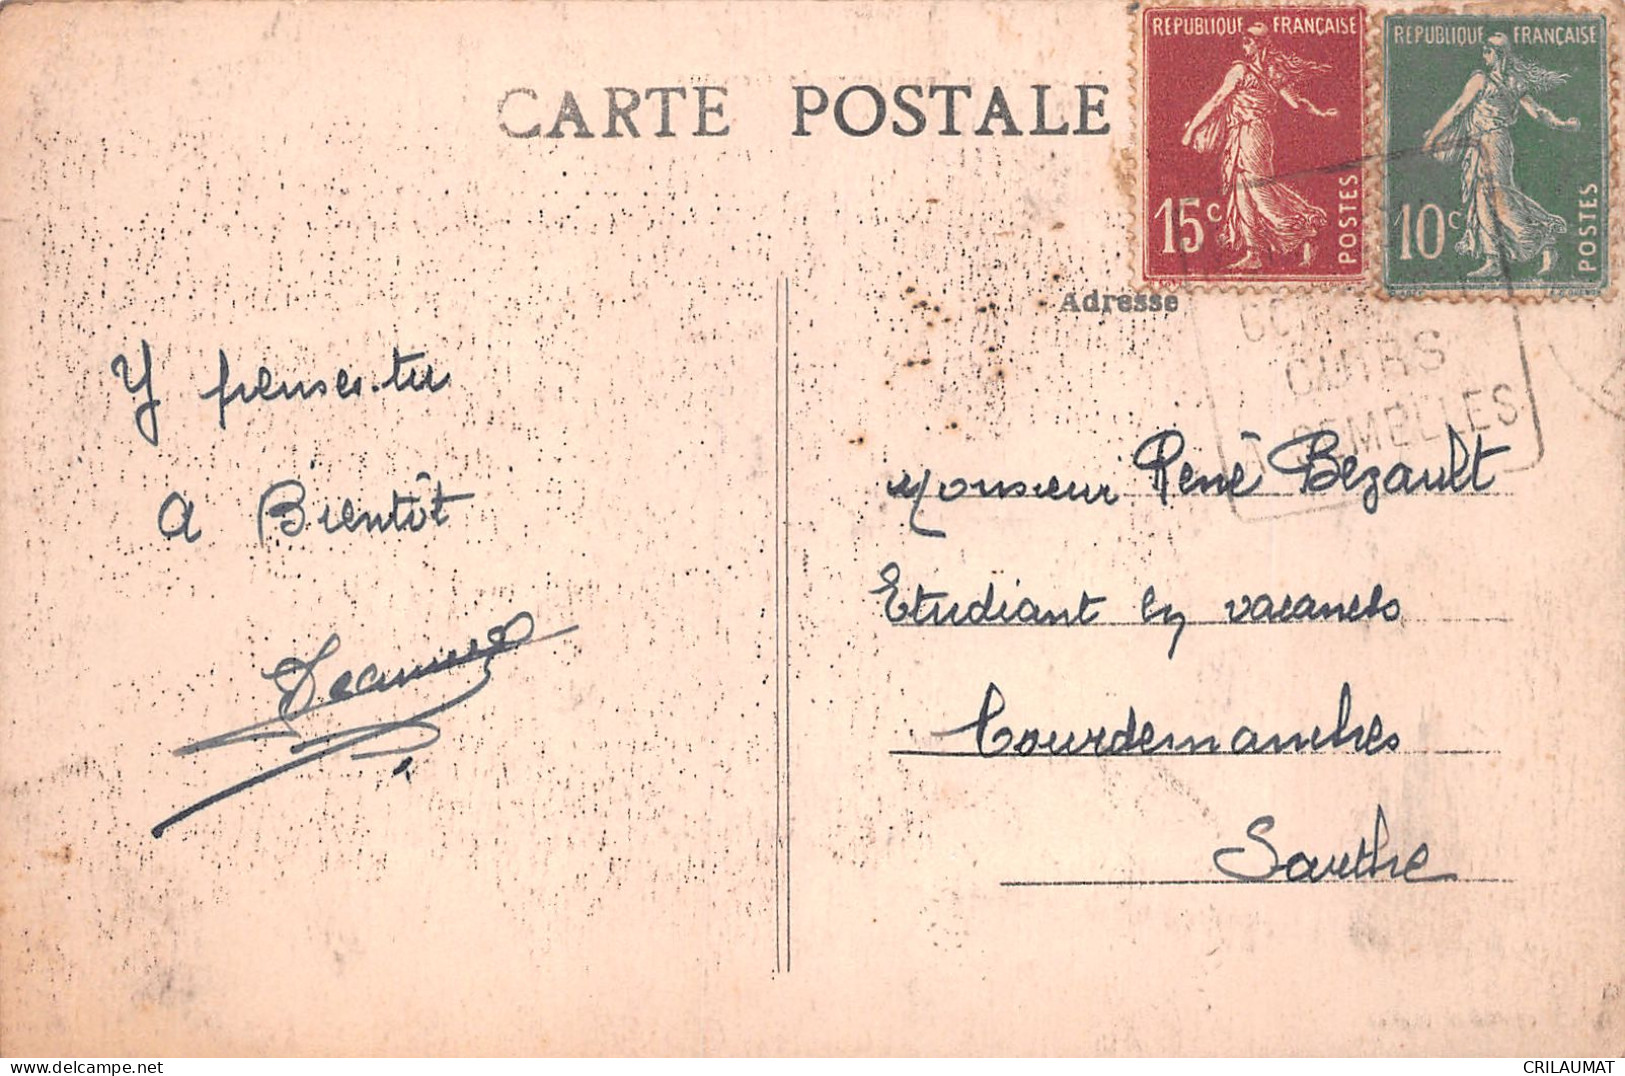 CARTE POSTALE
REPUBLIQUE FRANÇAISE
15c
POSTES
REPUBLIQUE FRANÇAISE
10c
POSTES
Adresse
CUIRS
SEMELLES
Y penses-tu
A Bientôt
Jeanne
Monsieur René Bezault
Etudiant en vacances
Courdemanches
Sarthe
CRILAUMAT